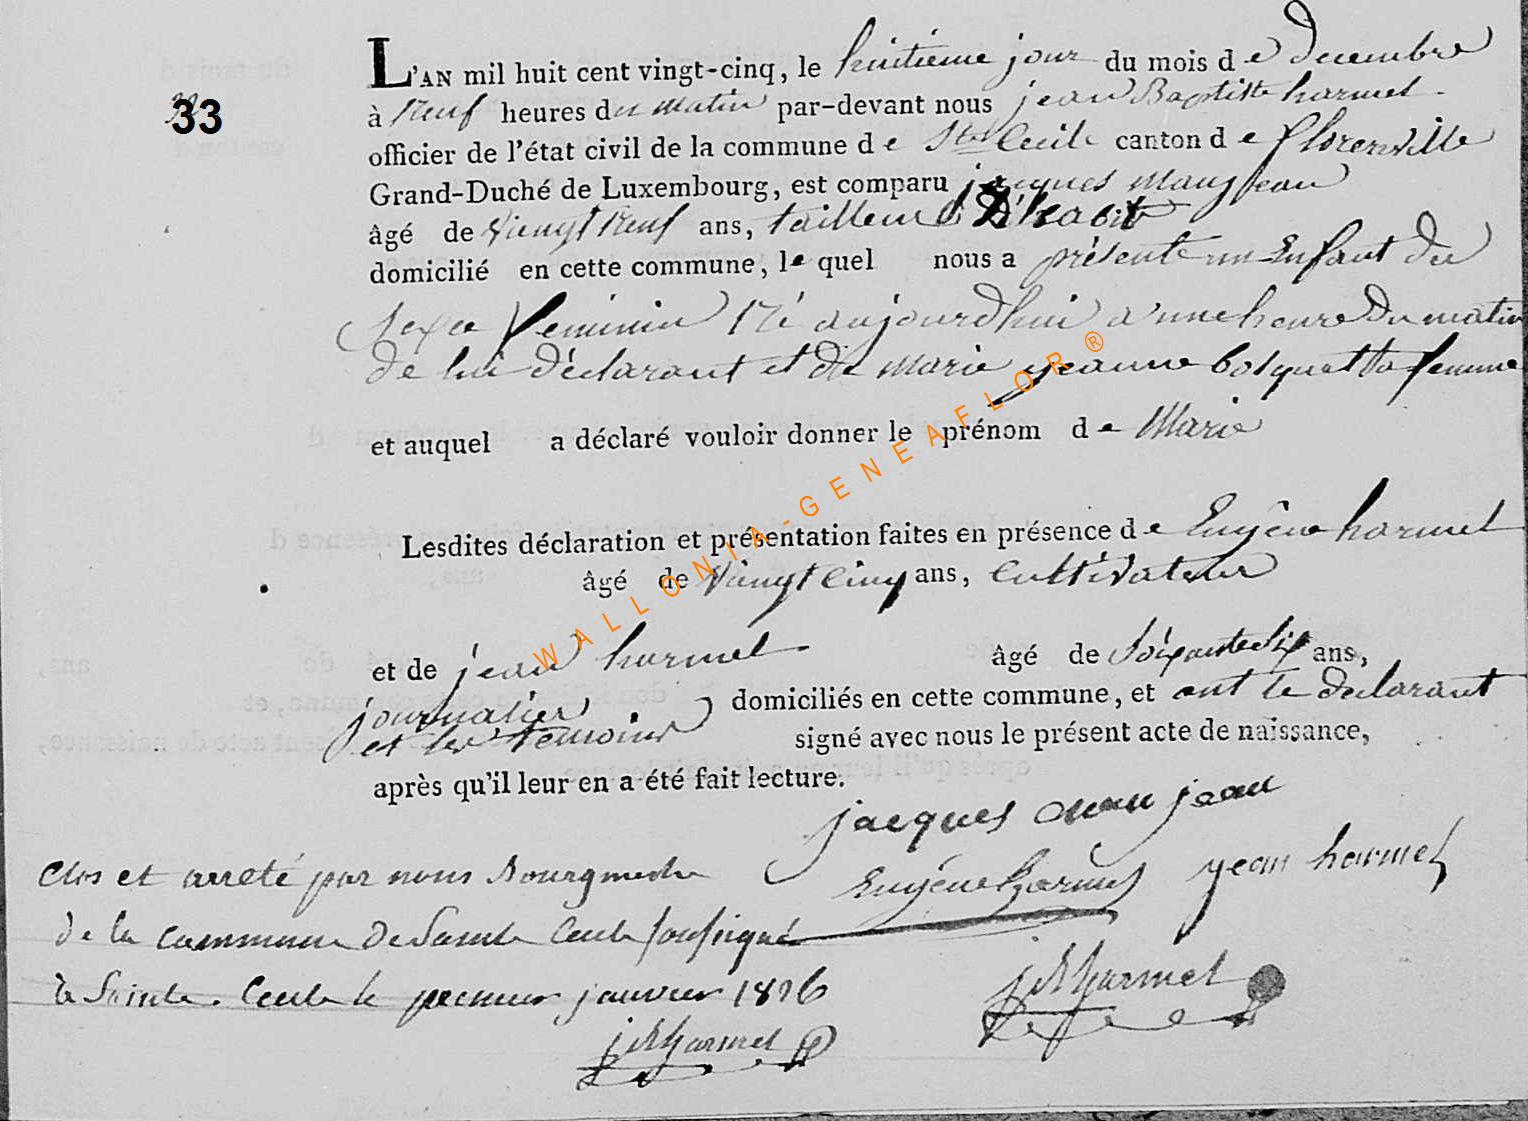 L'AN mil huit cent vingt-cinq, le huitieme jour du mois de decembre
33
à Neuf heures du matin par-devant nous jean Baptiste harmel
officier de l'état civil de la commune de Ste Cecile canton de florenville
Grand-Duché de Luxembourg, est comparu jacques manjean
âgé de Vingt Neuf ans, tailleur d'habit
domicilié en cette commune, lequel nous a présenté un Enfant du
Sexe feminin Né aujourdhui a une heure du matin
de lui déclarant et de marie jeanne bosquet sa femme
et auquel a déclaré vouloir donner le prénom de Marie
Lesdites déclaration et présentation faites en présence de Eugêne harmel
âgé de Vingt Cinq ans, Cultivateur
et de jean harmel âgé de Soixante Six ans,
journalier domiciliés en cette commune, et ont le declarant
et les temoins signé avec nous le présent acte de naissance,
après qu'il leur en a été fait lecture.
jacques manjean
Clos et arreté par nous Bourgmestre
Eugêne harmel jean harmel
de la commune de Sainte Cecile soussigné
à Sainte. Cecile le premier janvier 1826
jBharmel
jBharmel
WALLONIA-GENEAFLOR®